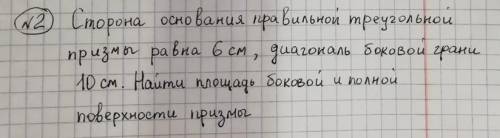 №2 Сторона основания правильной треугольной
призмы равна 6 см, диагональ боковой грани
10 см. Найти площадь боковой и полной
поверхности призмы